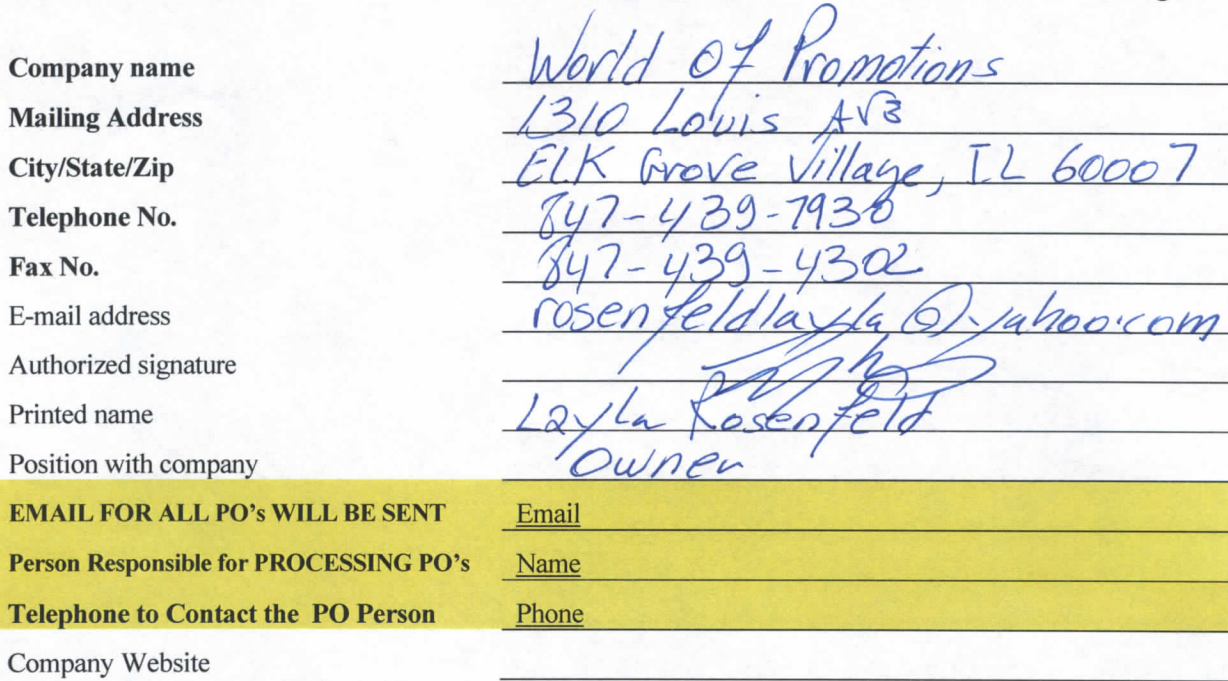 Company name World Of Promotions
Mailing Address 1310 Louis AVE
City/State/Zip ELK Grove Village, IL 60007
Telephone No. 847-439-7930
Fax No. 847-439-4302
E-mail address rosenfeldlayla@yahoo.com
Authorized signature
Printed name Layla Rosenfeld
Position with company Owner
EMAIL FOR ALL PO's WILL BE SENT Email
Person Responsible for PROCESSING PO's Name
Telephone to Contact the PO Person Phone
Company Website